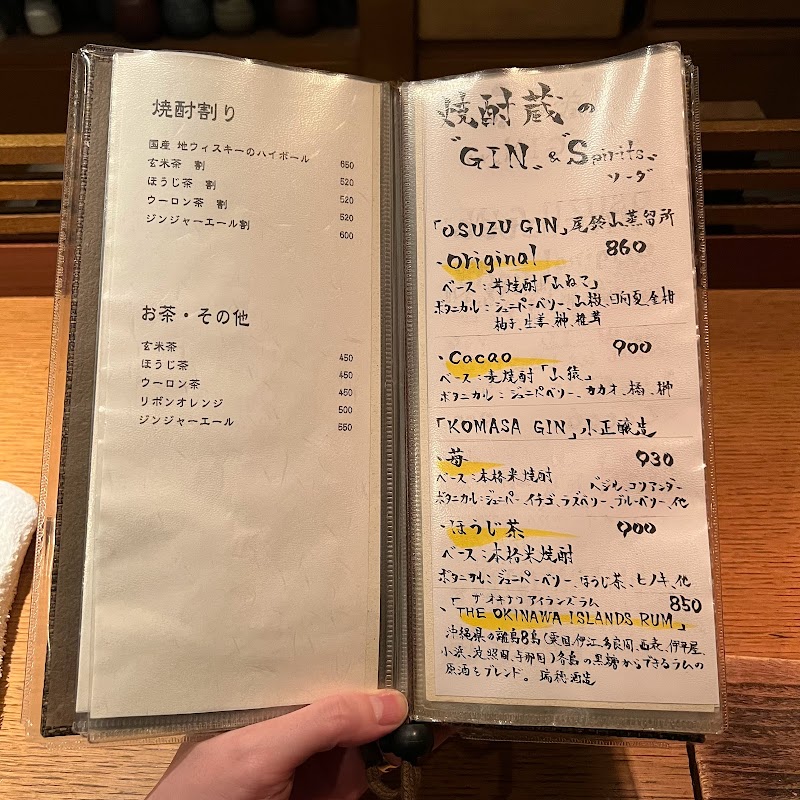 焼酎割り
国産 地ウィスキーのハイボール 650
玄米茶 割 520
ほうじ茶 割 520
ウーロン茶 割 520
ジンジャーエール割 600
お茶・その他
玄米茶 450
ほうじ茶 450
ウーロン茶 450
リボンオレンジ 500
ジンジャーエール 550
焼酎蔵の
"GIN" & "Spirits"
ソーダ
「OSUZU GIN」尾鈴山蒸留所
・Original 860
ベース:芋焼酎「山ねこ」
ボタニカル:ジュニパーベリー、山椒、日向夏、金柑
柚子、生姜、榊、椎茸
・Cacao 900
ベース:麦焼酎「山猿」
ボタニカル:ジュニパベリー、カカオ、橘、榊
「KOMASA GIN」小正醸造
・苺 930
ベース:本格米焼酎 ベジル、コリアンダー
ボタニカル:ジュニパー、イチゴ、ラズベリー、ブルーベリー、他
・ほうじ茶 900
ベース:本格米焼酎
ボタニカル:ジュニパーベリー、ほうじ茶、ヒノキ、他
ザ オキナワ アイランズラム 850
・「THE OKINAWA ISLANDS RUM」
沖縄県の離島8島(粟国、伊江、多良間、西表、伊平屋、
小浜、波照間、与那国)各島の黒糖からできるラムの
原酒をブレンド。瑞穂酒造